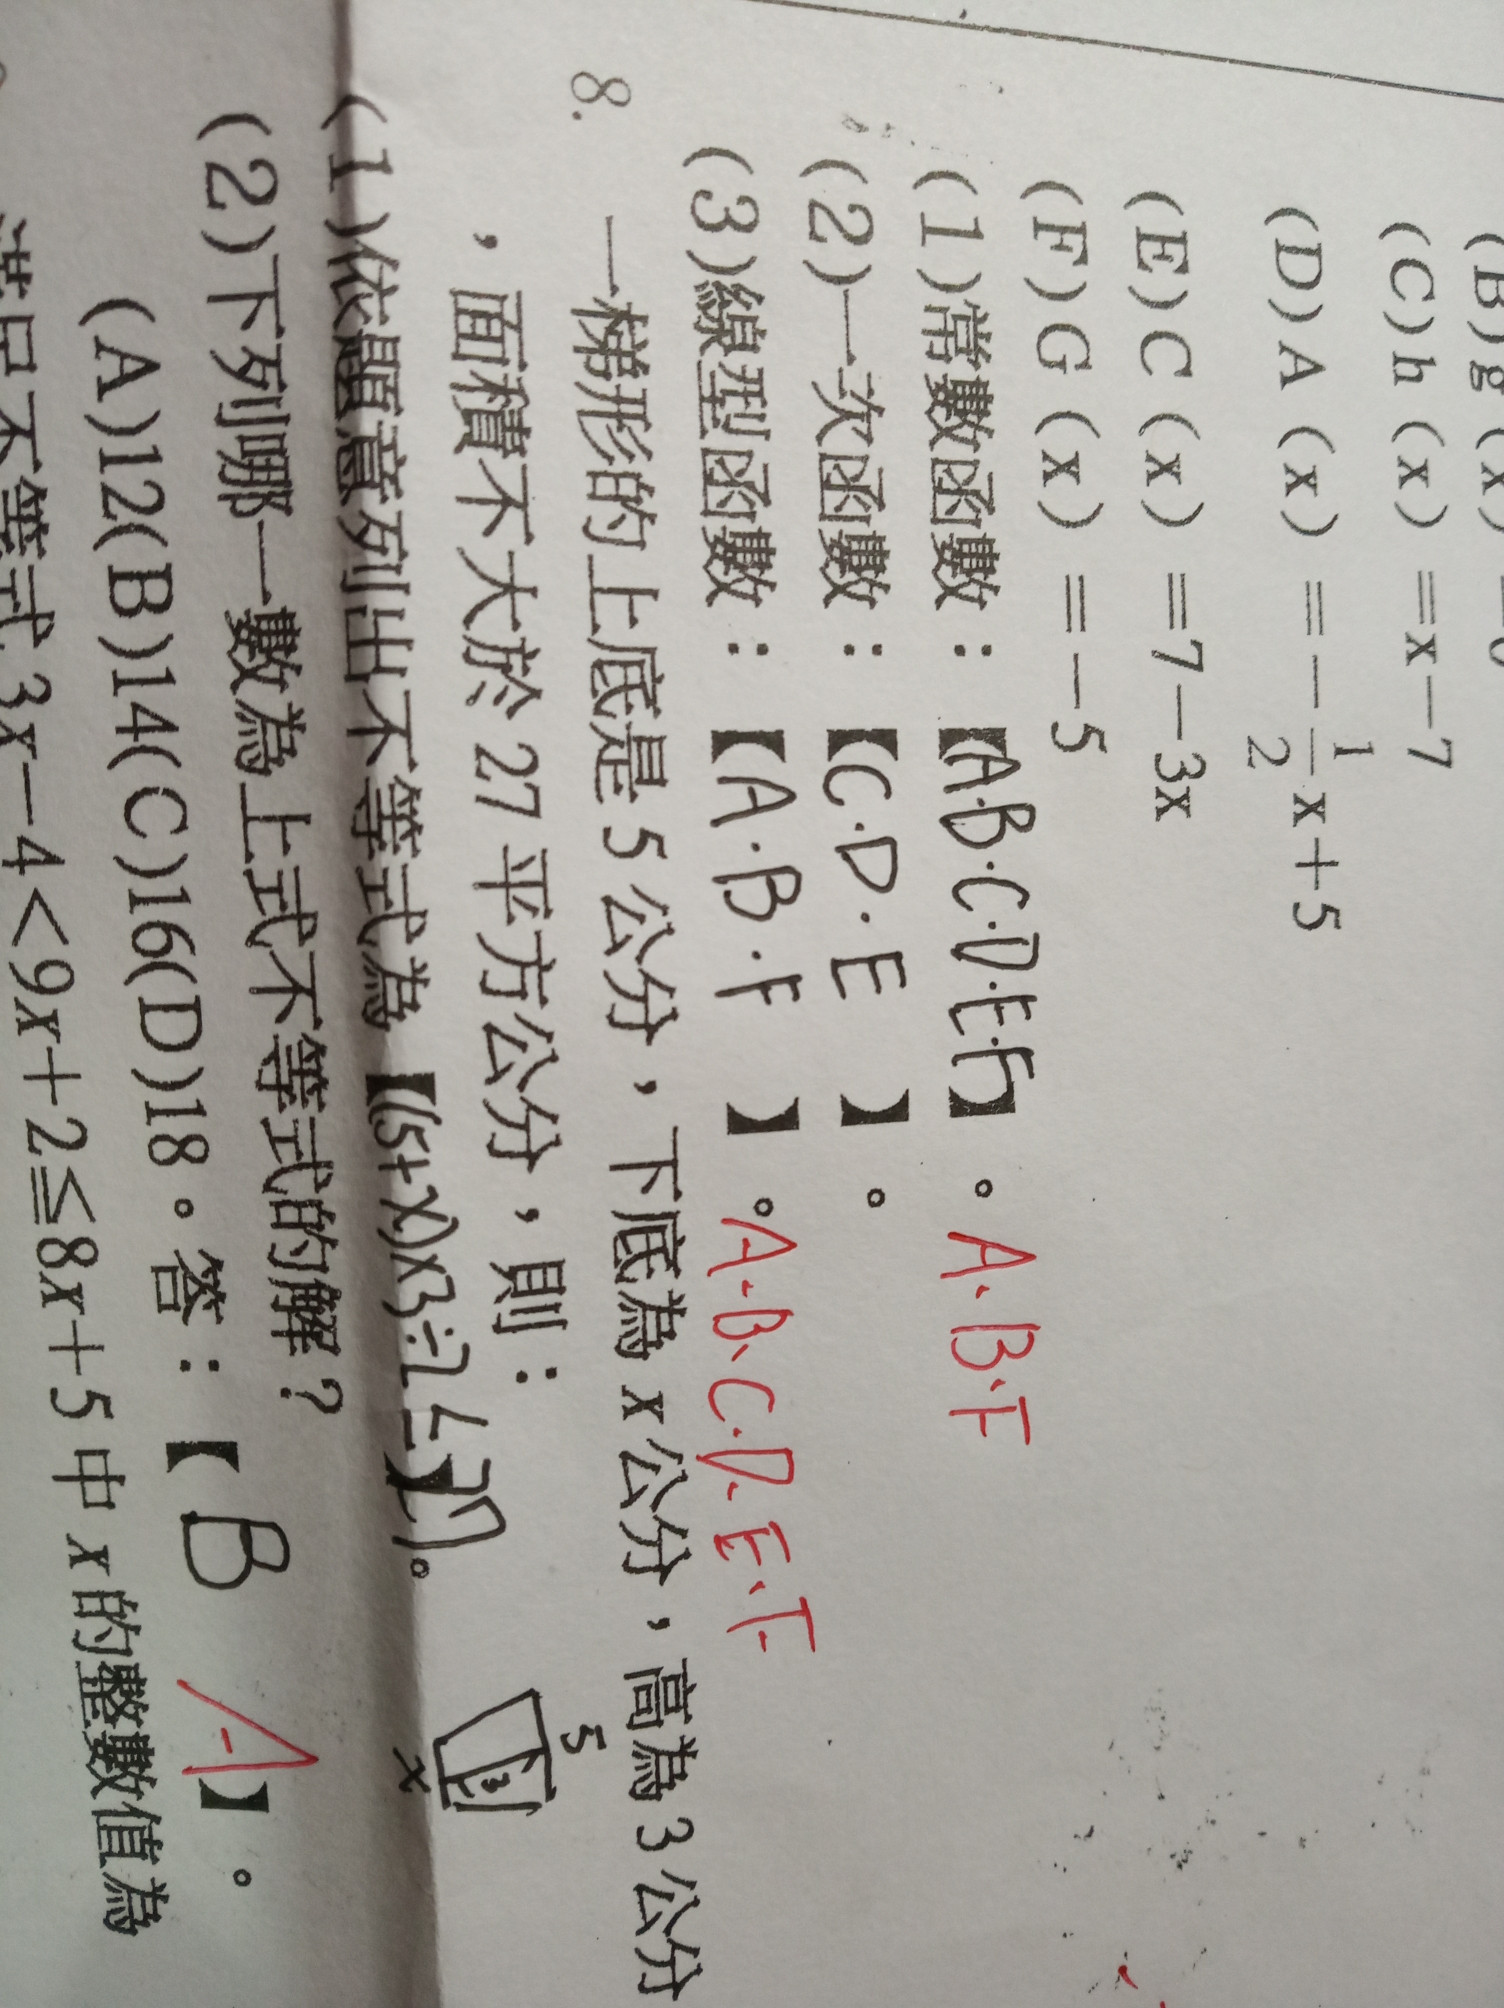 (C)h(x)=x-7
(D)A(x)=-1/2x+5
(E)C(x)=7-3x
(F)G(x)=-5
(1)常數函數：【A.B.C.D.E.F】。A.B.F
(2)一次函數：【C.D.E】。
(3)線型函數：【A.B.F】。A.B.C.D.E.F
8. 一梯形的上底是5公分，下底為x公分，高為3公分
，面積不大於27平方公分，則：
5
3
x
(1)依題意列出不等式為【(5+x)×3÷2≤27】。
(2)下列哪一數為上式不等式的解？
(A)12(B)14(C)16(D)18。答：【B A】。
不等式3x-4<9x+2≤8x+5中x的整數值為